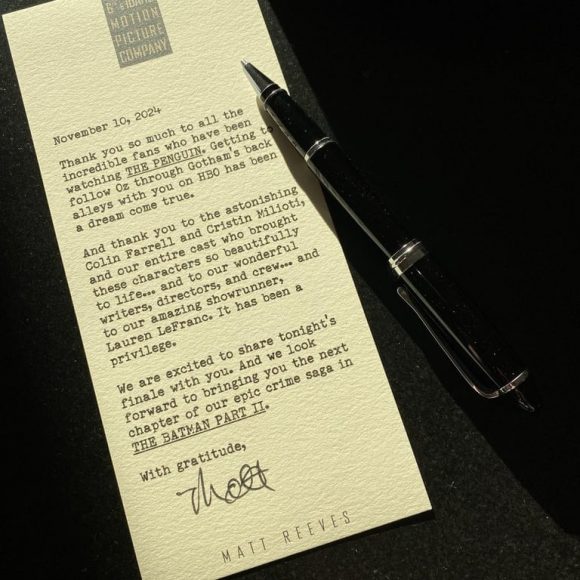 6th & IDAHO
MOTION
PICTURE
COMPANY
November 10, 2024
Thank you so much to all the
incredible fans who have been
watching THE PENGUIN. Getting to
follow Oz through Gotham's back
alleys with you on HBO has been
a dream come true.
And thank you to the astonishing
Colin Farrell and Cristin Milioti,
and our entire cast who brought
these characters so beautifully
to life... and to our wonderful
writers, directors, and crew... and
to our amazing showrunner,
Lauren LeFranc. It has been a
privilege.
We are excited to share tonight's
finale with you. And we look
forward to bringing you the next
chapter of our epic crime saga in
THE BATMAN PART II.
With gratitude,
Matt
MATT REEVES